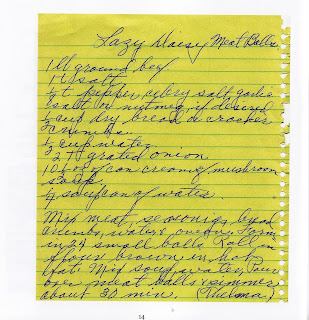 Lazy Daisy Meat Balls
1 lb ground beef
1 t salt
1/4 t pepper, celery salt, garlic
salt or nutmeg, if desired
1/2 cup dry bread or cracker
crumbs
1/3 cup water
2 T grated onion
10 1/2 oz can cream of mushroom
soup
1/2 soup can of water
Mix meat, seasonings, bread
crumbs, water & onion. Form
in 24 small balls. Roll in
flour brown in hot
fat. Mix soup, water, pour
over meat balls & simmer
about 30 min. (Thelma)
14